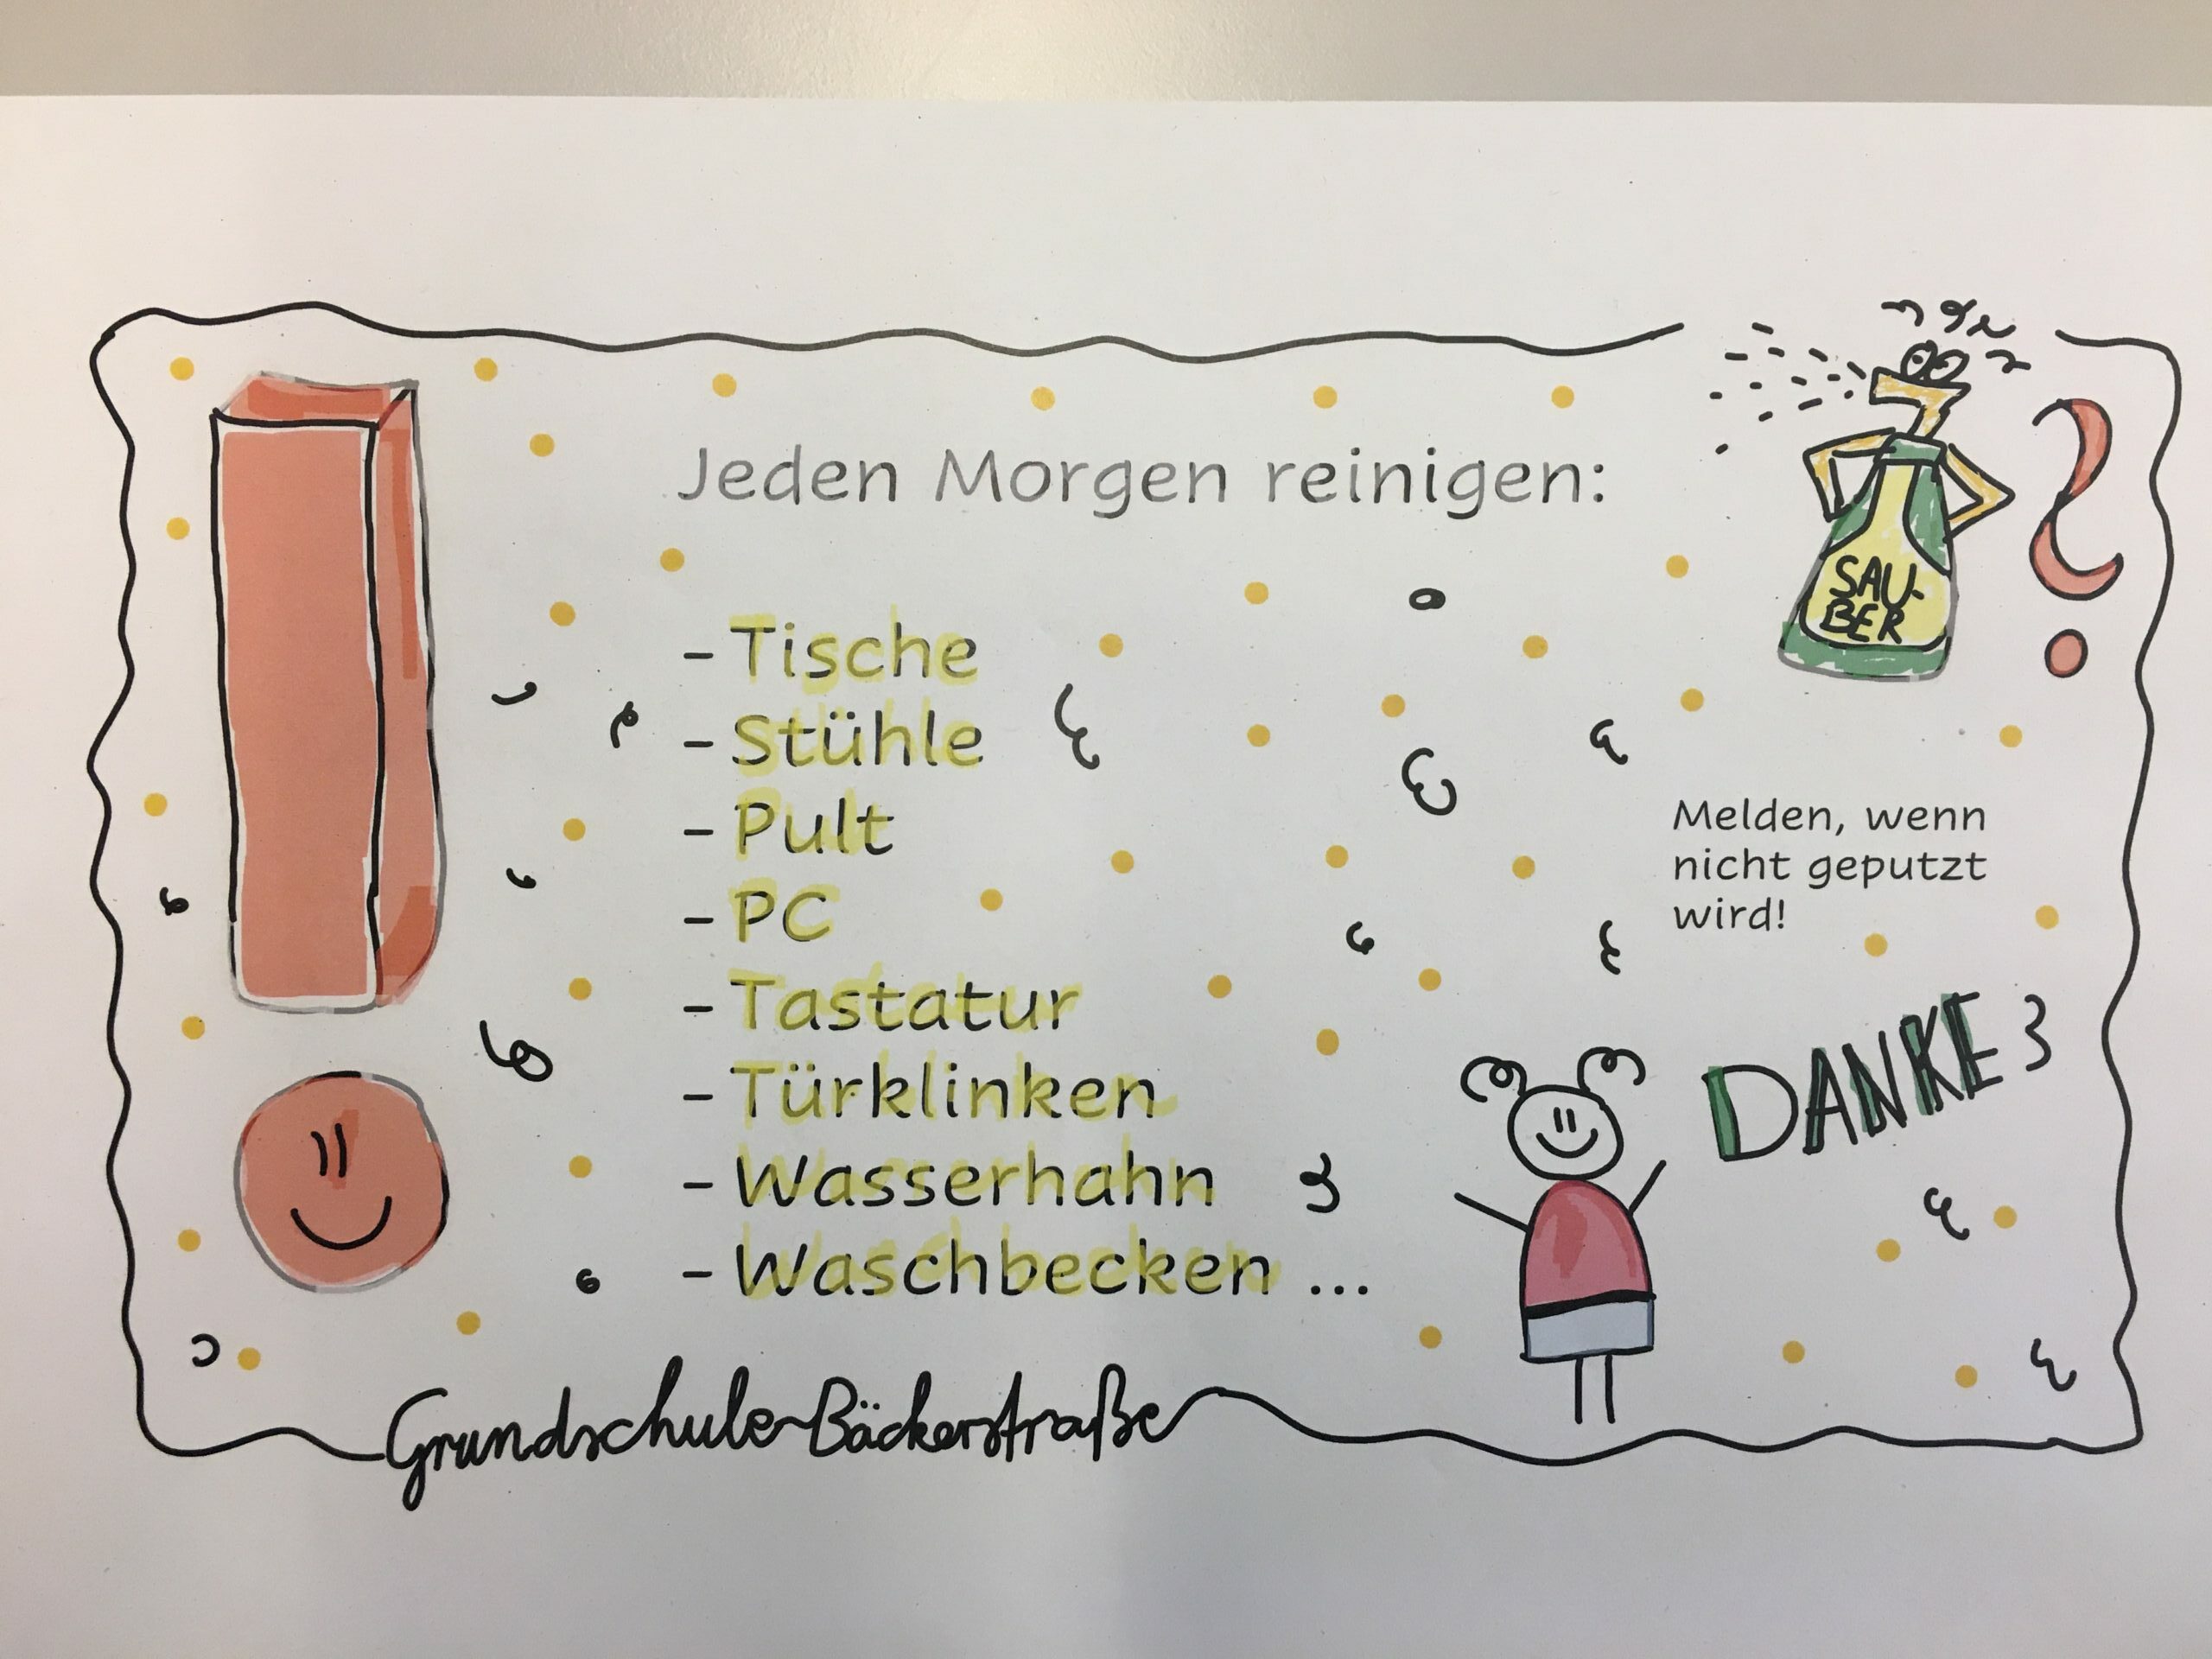 Jeden Morgen reinigen:
SAU-
BER
- Tische
- Stühle
- Pult
- PC
- Tastatur
- Türklinken
- Wasserhahn
- Waschbecken ...
Melden, wenn
nicht geputzt
wird!
DANKE
Grundschule Bäckerstraße